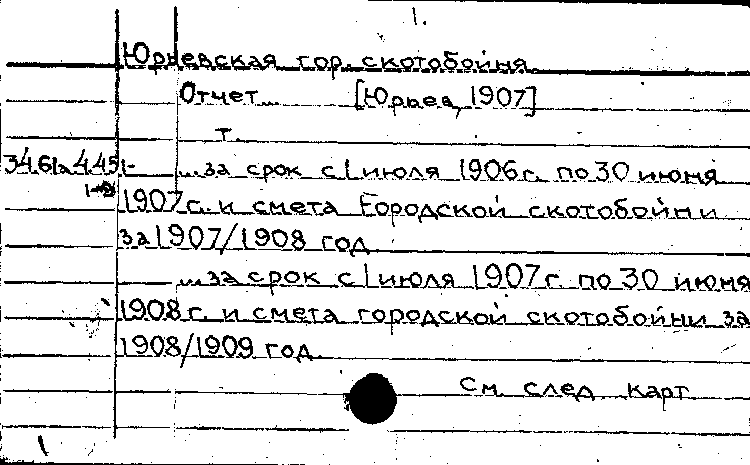 1.
Юрьевская гор. скотобойня.
Отчет... [Юрьев, 1907]
т.
...за срок с 1 июля 1906 г. по 30 июня
1907 г. и смета Городской скотобойни
за 1907/1908 год
...за срок с 1 июля 1907 г. по 30 июня
1908 г. и смета городской скотобойни за
1908/1909 год.
См. след. карт.